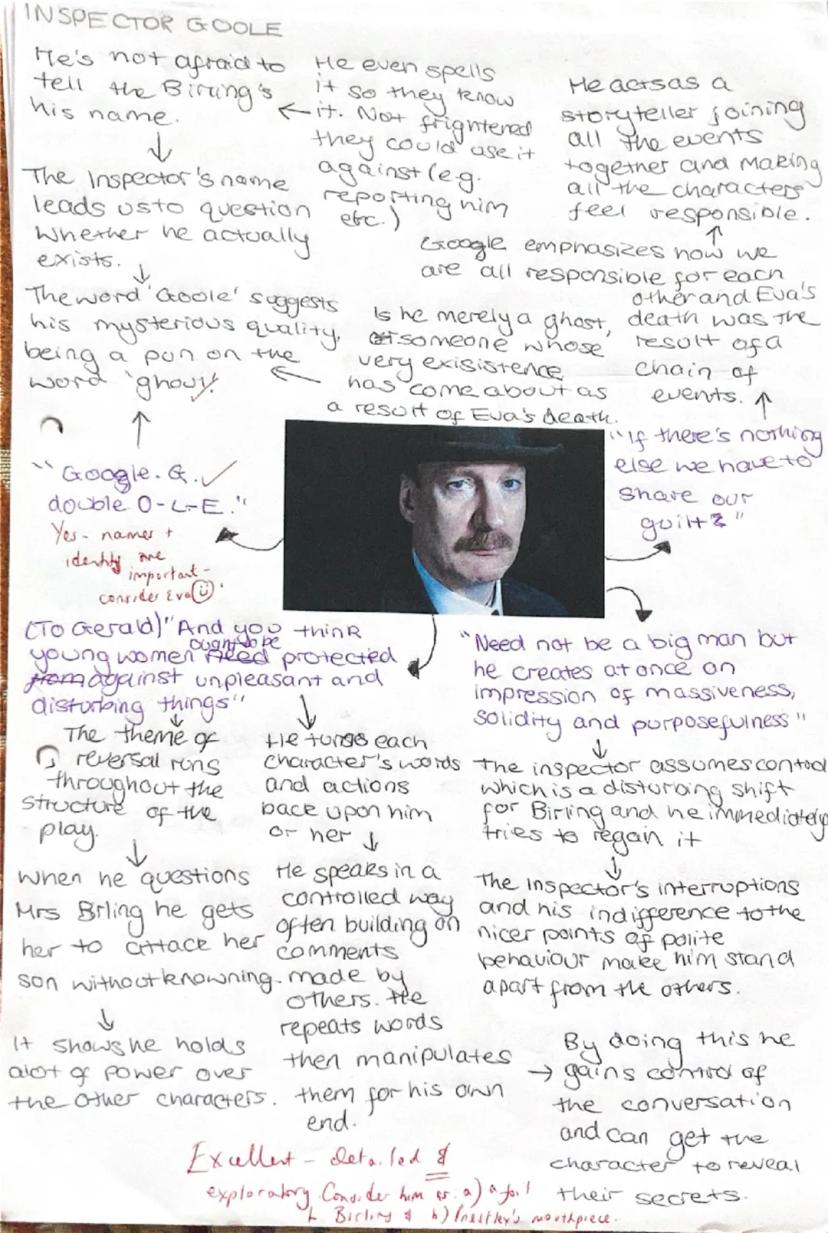 INSPECTOR GOOLE
He's not afraid to
tell the Birling's
his name.
He even spells
it so they know
it. Not frightened
they could use it
against (e.g.
reporting him
etc.)
He acts as a
storyteller joining
all the events
together and making
all the characters
feel responsible.
The Inspector's name
leads us to question
whether he actually
exists.
Google emphasizes how we
are all responsible for each
other and Eva's
death was the
result of a
chain of
events.
The word 'Goole' suggests
his mysterious quality,
being a pun on the
word 'ghoul'.
Is he merely a ghost,
or someone whose
very exisistence
has come about as
a result of Eva's death.
"Google. G.
double O-L-E."
Yes - names +
identity are
important -
consider Eva
"If there's nothing
else we have to
share our
guilt"
(To Gerald) "And you think
young women ought to be protected
against unpleasant and
disturbing things"
"Need not be a big man but
he creates at once an
impression of massiveness,
solidity and purposefulness"
The theme of
reversal runs
throughout the
structure of the
play.
He turns each
character's words
and actions
back upon him
or her
The inspector assumes control
which is a disturbing shift
for Birling and he immediately
tries to regain it
When he questions
Mrs Birling he gets
her to attack her
son without knowning.
He speaks in a
controlled way
often building on
comments
made by
others. He
repeats words
then manipulates
them for his own
end.
The Inspector's interruptions
and his indifference to the
nicer points of polite
behaviour make him stand
apart from the others.
It shows he holds
alot of power over
the other characters.
By doing this he
gains control of
the conversation
and can get the
character to reveal
their secrets.
Excellent - detailed &
exploratory. Consider him as: a) a foil
to Birling & b) Priestley's mouthpiece.